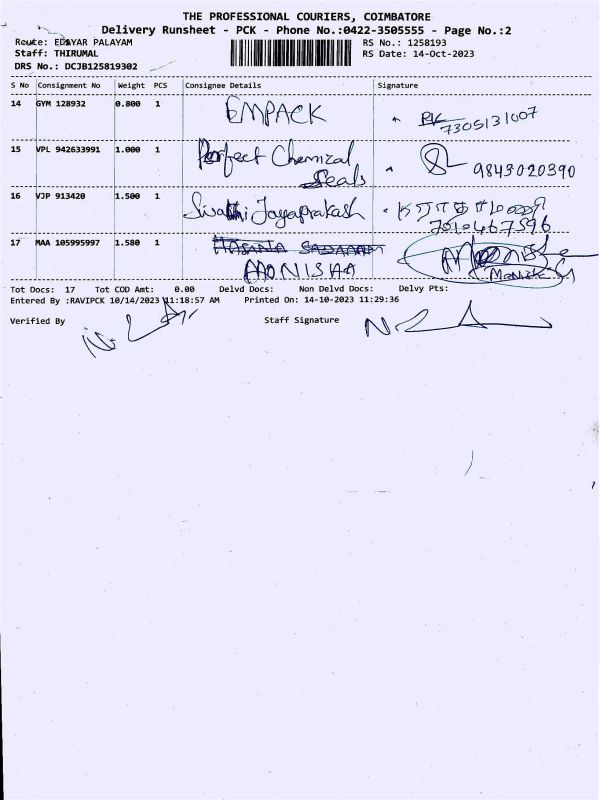 THE PROFESSIONAL COURIERS, COIMBATORE
Delivery Runsheet - PCK - Phone No.:0422-3505555 - Page No.:2
Route: EDAYAR PALAYAM
RS No.: 1258193
Staff: THIRUMAL
RS Date: 14-Oct-2023
DRS No.: DCJB125819302
S No Consignment No Weight PCS Consignee Details Signature
14 GYM 128932 0.800 1 EMPACK 7305131007
15 VPL 942633991 1.000 1 Perfect Chemical
Seals 9843020390
16 VJP 913420 1.500 1 Swathi Jayaprakash
7010467596
17 MAA 105995997 1.580 1
MONISHA
Tot Docs: 17 Tot COD Amt: 0.00 Delvd Docs: Non Delvd Docs: Delvy Pts:
Entered By :RAVIPCK 10/14/2023 11:18:57 AM Printed On: 14-10-2023 11:29:36
Verified By Staff Signature